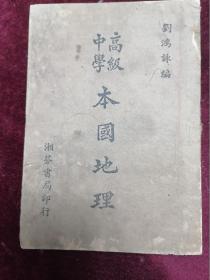 劉鴻詠編
高級中學
本國地理
湘芬書局印行